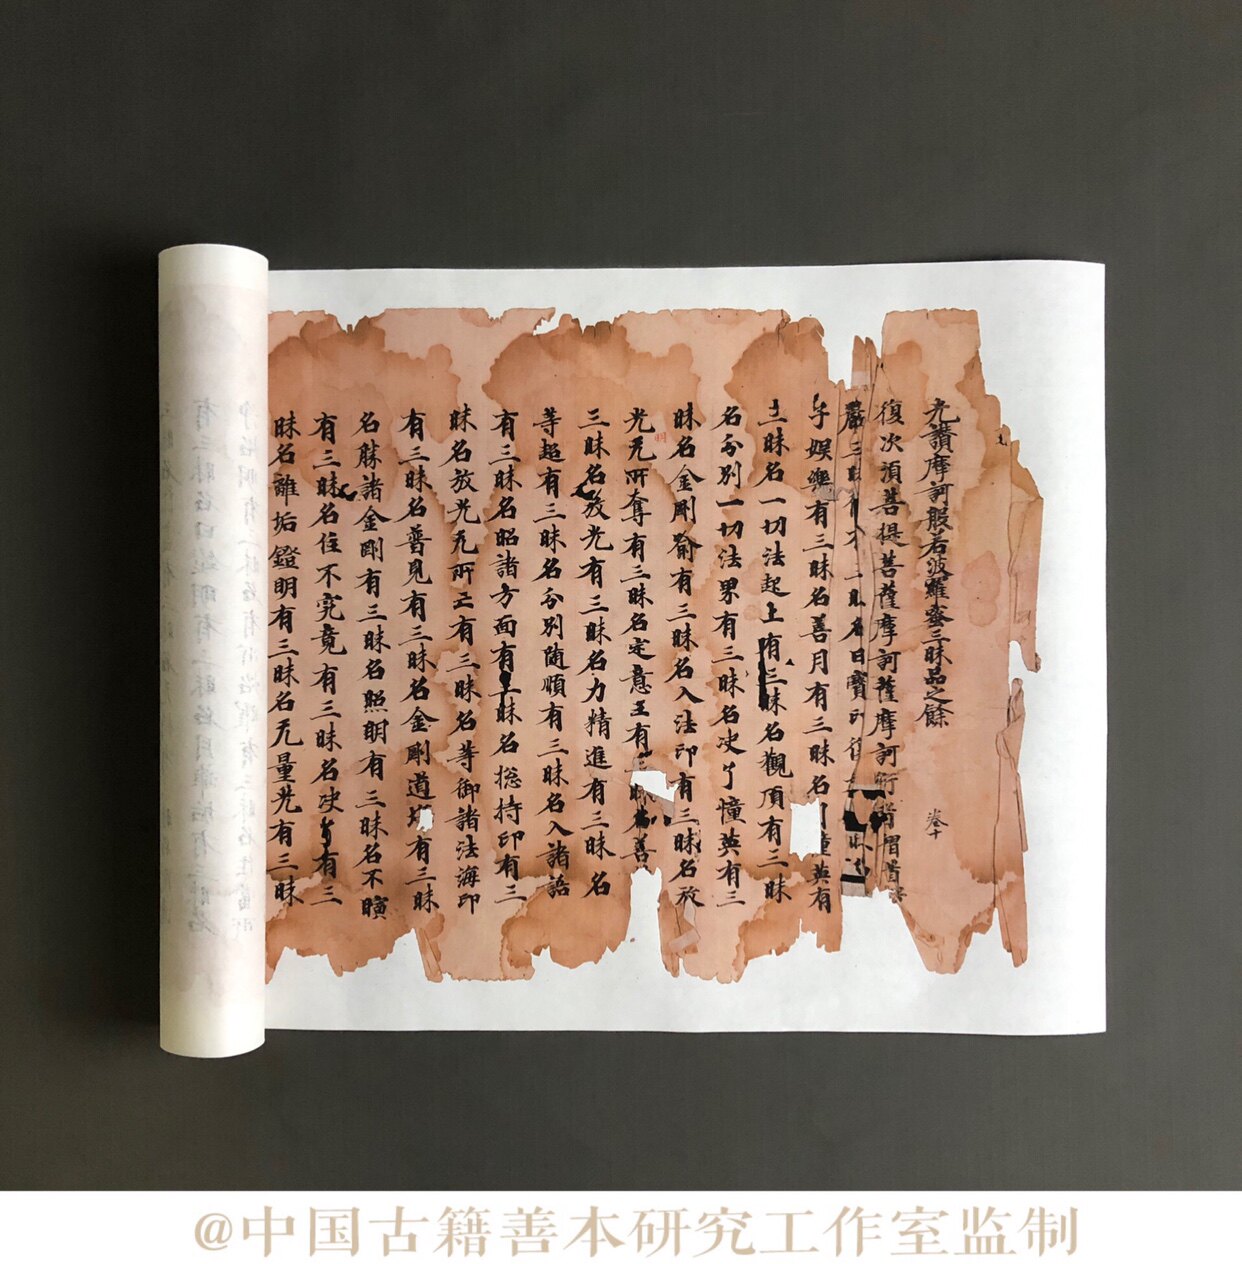 光讚摩訶般若波羅蜜三昧品之餘 卷十
復次須菩提菩薩摩訶薩摩訶衍者謂
嚴三昧有 三昧名曰寶印
娛樂有三昧名善月有三昧名 幢英有
三昧名一切法起上有三昧名觀頂有三昧
名分別一切法界有三昧名决了憧英有三
昧名金剛喻有三昧名入法印有三昧名放
光无所奪有三昧名定意王有三昧名善
明
三昧名放光有三昧名力精進有三昧名
等超有三昧名分別随順有三昧名入諸語
有三昧名昭諸方面有三昧名捴持印有三
昧名放光无所工有三昧名等御諸法海印
有三昧名普見有三昧名金剛道 有三昧
名勝諸金剛有三昧名照明有三昧名不曠
有三昧名住不究竟有三昧名决了有三
昧名離垢鐙明有三昧名无量光有三昧
@中国古籍善本研究工作室监制